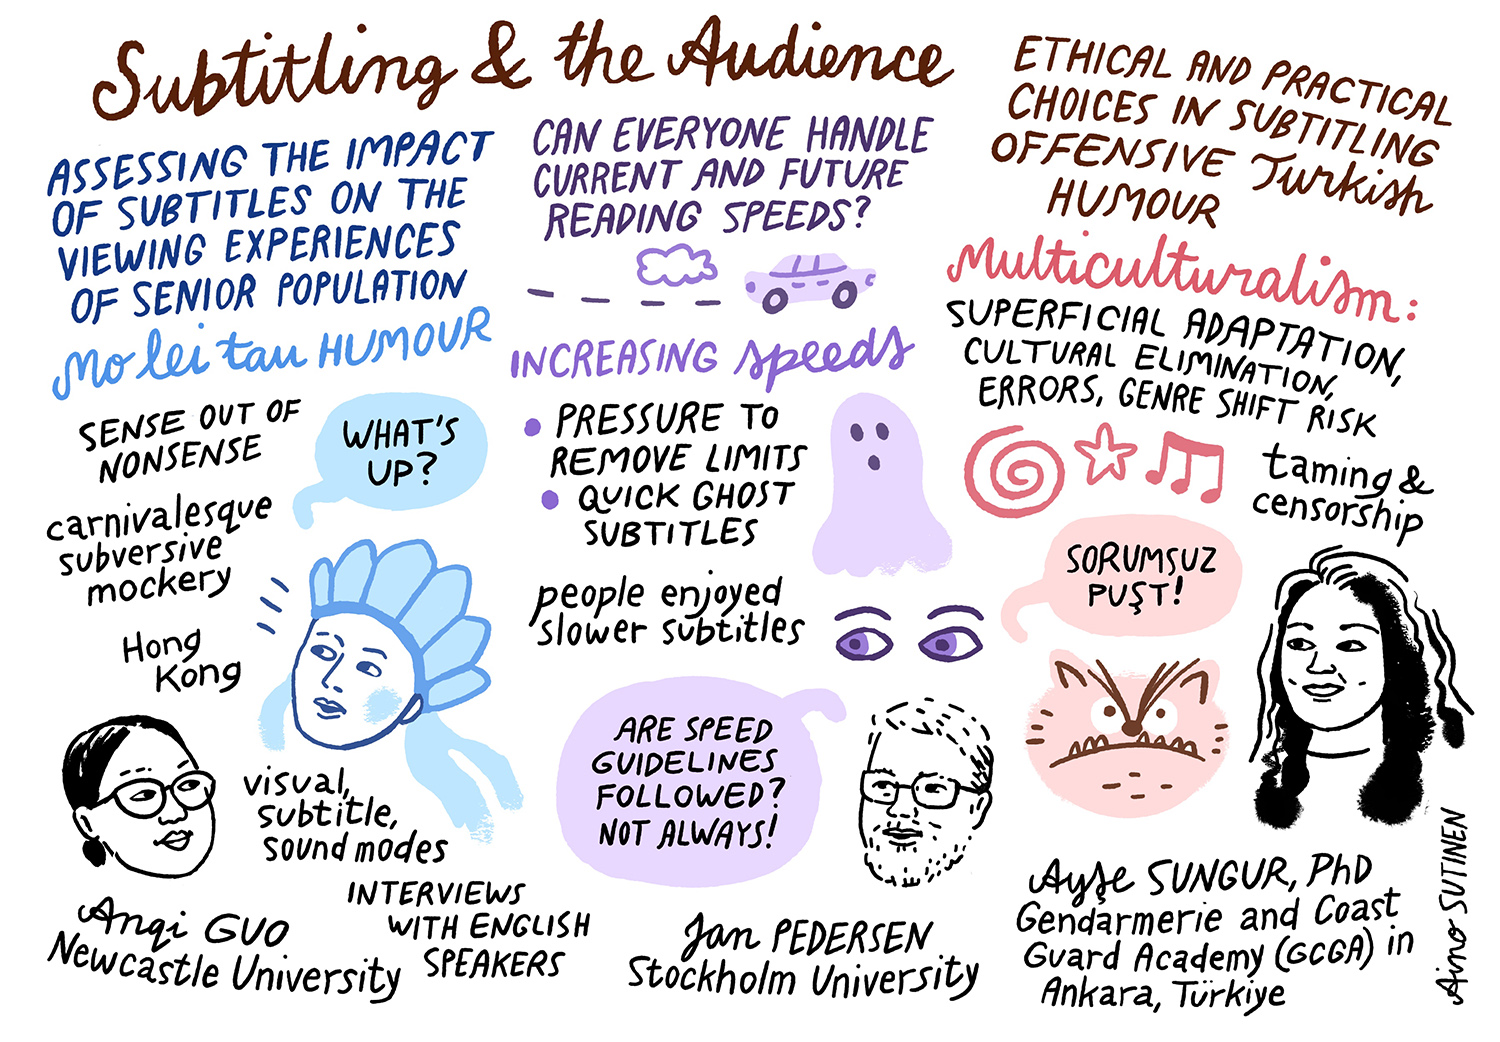 Subtitling & the Audience
ASSESSING THE IMPACT
OF SUBTITLES ON THE
VIEWING EXPERIENCES
OF SENIOR POPULATION
Mo lei tau HUMOUR
SENSE OUT OF
NONSENSE
WHAT'S
UP?
carnivalesque
subversive
mockery
Hong
Kong
visual,
subtitle,
sound modes
INTERVIEWS
WITH ENGLISH
SPEAKERS
Anqi GUO
Newcastle University
CAN EVERYONE HANDLE
CURRENT AND FUTURE
READING SPEEDS?
INCREASING speeds
• PRESSURE TO
REMOVE LIMITS
• QUICK GHOST
SUBTITLES
people enjoyed
slower subtitles
ARE SPEED
GUIDELINES
FOLLOWED?
NOT ALWAYS!
Jan PEDERSEN
Stockholm University
ETHICAL AND PRACTICAL
CHOICES IN SUBTITLING
OFFENSIVE Turkish
HUMOUR
Multiculturalism:
SUPERFICIAL ADAPTATION,
CULTURAL ELIMINATION,
ERRORS, GENRE SHIFT RISK
taming &
censorship
SORUMSUZ
PUŞT!
Ayşe SUNGUR, PhD
Gendarmerie and Coast
Guard Academy (GCGA) in
Ankara, Türkiye
Aino SUTINEN